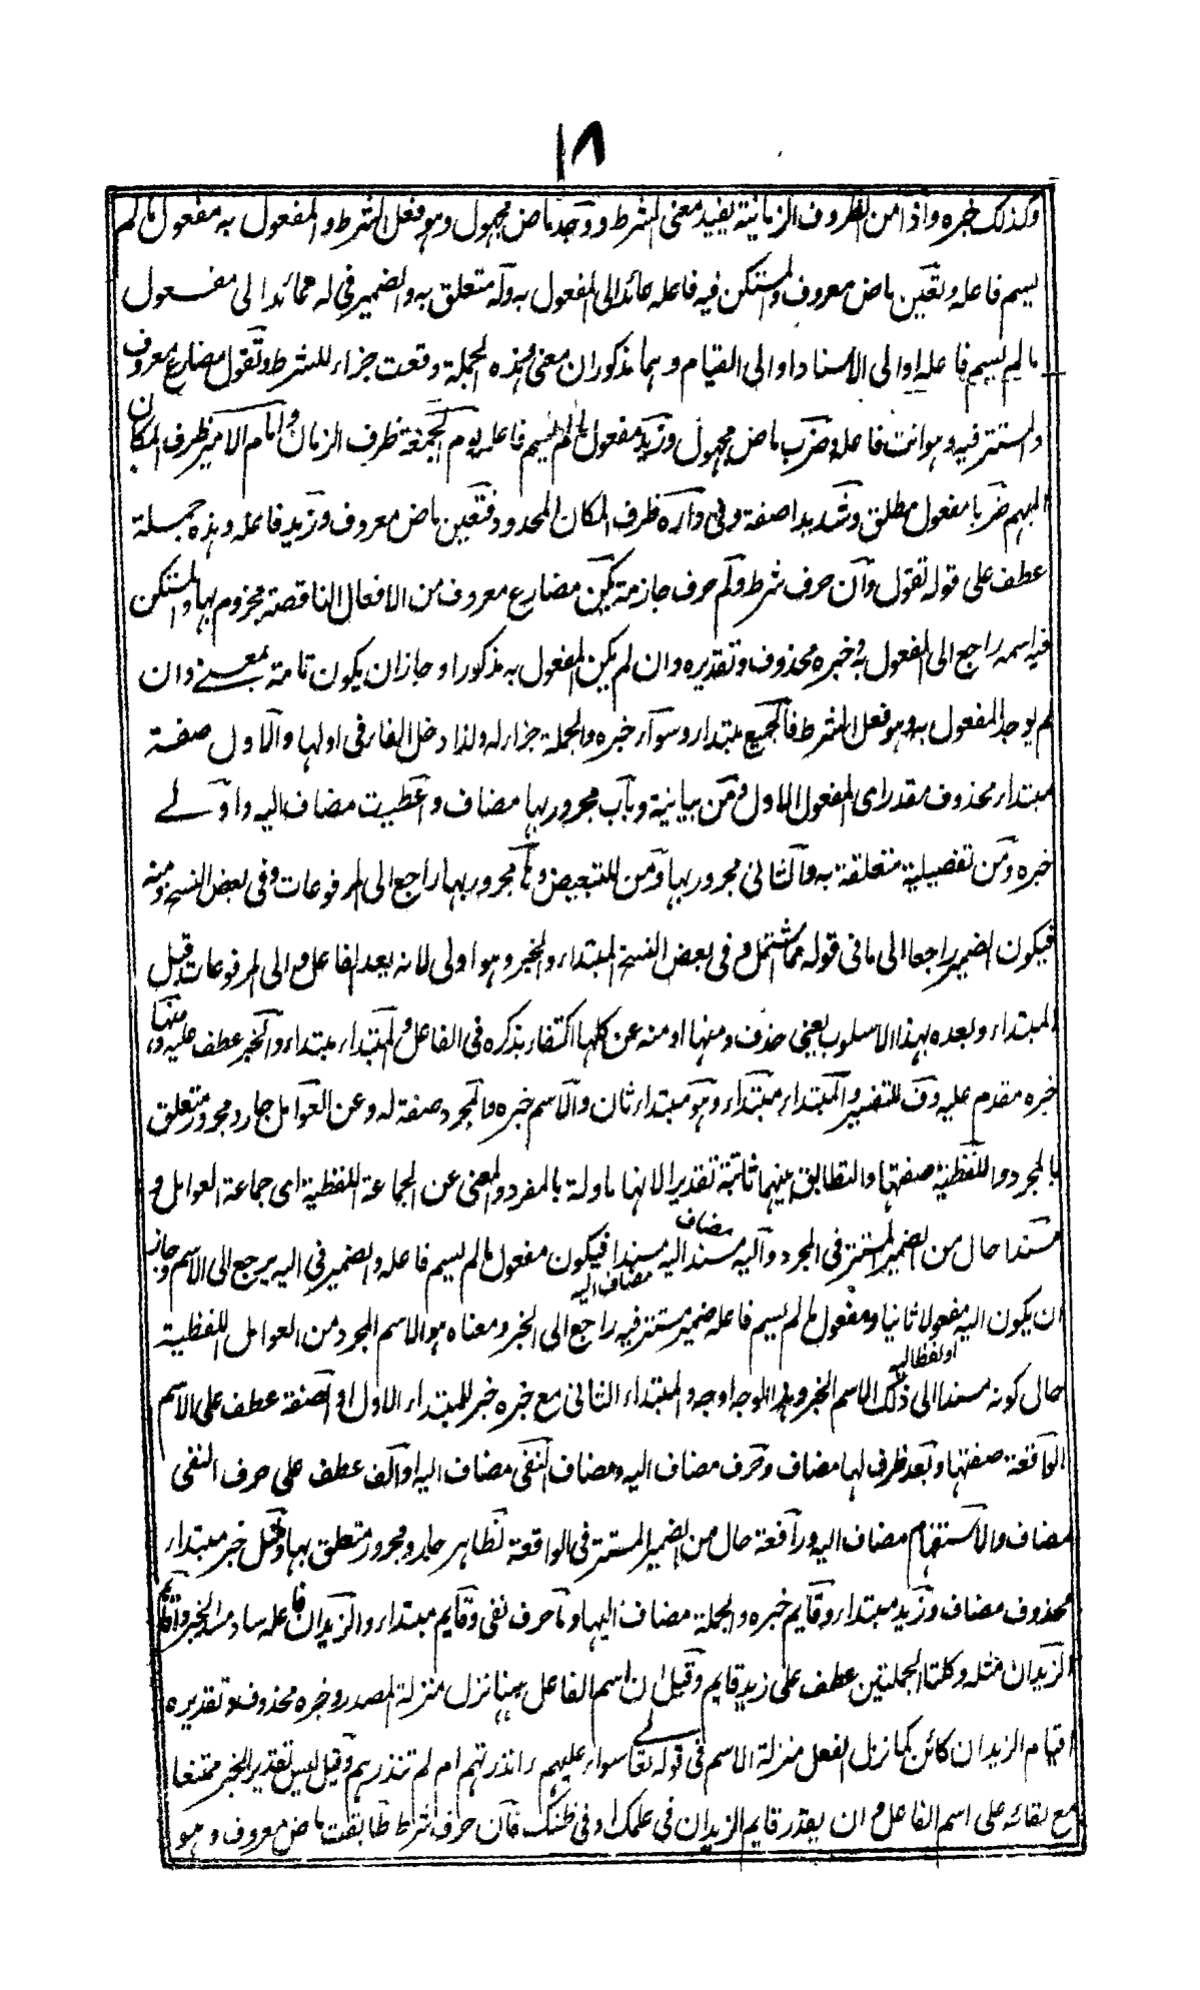 ١٨
وكذلك خبره واذا من الظروف الزمانية يفيد معنى الشرط ووجد ماض مجهول وهو فعل الشرط والمفعول به مفعول ما لم
يسم فاعله وتعين ماض معروف والمستكن فيه فاعله عائد الى المفعول به وله متعلق به والضمير فى له عائد الى مفعول
ما لم يسم فاعله او الى الاسناد او الى القيام وهما مذكوران معنى وهذه الجملة وقعت جزاء للشرط وتقول مضارع معروف
والمستتر فيه وهو انت فاعله وضرب ماض مجهول وزيد مفعول ما لم يسم فاعله يوم الجمعة ظرف الزمان وامام الامير ظرف المكان
المبهم ضربا مفعول مطلق وشديدا صفة وفى داره ظرف المكان المحدود فتعين ماض معروف وزيد فاعله وهذه جملة
عطف على قوله تقول وان حرف شرط ولم حرف جازمة يكن مضارع معروف من الافعال الناقصة مجزوم بها والمستكن
فيه اسمه راجع الى المفعول به وخبره محذوف وتقديره وان لم يكن المفعول به مذكورا وجاز ان يكون تامة بمعنے وان
لم يوجد المفعول به وهو فعل الشرط فالجميع مبتداء وسواء خبره والجملة جزاء له ولذا دخل الفاء فى اولها والاول صفة
مبتداء محذوف مقدر اى المفعول الاول ومن بيانية وباب مجرور بها مضاف واعطيت مضاف اليه واولے
خبره ومن تفصيلية متعلقة به والثانى مجرور بها ومن للتبعيض وها مجرور بها راجع الى المرفوعات وفى بعض النسخ ومنه
فيكون الضمير راجعا الى ما فى قوله مما اشتمل وفى بعض النسخ المبتداء والخبر وهو اولى لانه بعد الفاعل والى المرفوعات قبل
المبتداء وبعده بهذا الاسلوب يعنى حذف ومنها او منه عن كلها اكتفاء بذكره فى الفاعل والمبتداء مبتداء والخبر عطف عليه ومنها
خبره مقدم عليه وف للتفسير والمبتداء مبتداء وهو مبتداء ثان والاسم خبره والمجرد صفة له وعن العوامل جار ومجرور متعلق
بالمجرد واللفظية صفتها والتطابق بينهما ثابتة تقديرا لانها ماولة بالمفرد والمعنى عن الجماعة اللفظية اى جماعة العوامل و
مسندا حال من الضمير المستتر فى المجرد واليه مسند اليه مسندا فيكون مفعول ما لم يسم فاعله والضمير فى اليه يرجع الى الاسم وجاز
مضاف
مضاف اليه
ان يكون اليه مفعولا ثانيا ومفعول ما لم يسم فاعله ضمير مستتر فيه راجع الى الخبر ومعناه هو الاسم المجرد من العوامل اللفظية
او لفظ اليه
حال كونه مسندا الى ذلك الاسم الخبر وهذا الوجه اوجه والمبتداء الثانى مع خبره خبر للمبتداء الاول او الصفة عطف على الاسم
الواقعة صفتها وبعد ظرف لها مضاف وحرف مضاف اليه ومضاف النفى مضاف اليه او الف عطف على حرف النفى
مضاف والاستفهام مضاف اليه ورافعة حال من الضمير المستتر فى الواقعة لظاهر جار ومجرور متعلق بها ومثل خبر مبتداء
محذوف مضاف وزيد مبتداء وقايم خبره والجملة مضاف اليها وما حرف نفى وقايم مبتداء والزيدان فاعله ساد مسد الخبر واقايم
الزيدان مثله وكلتا الجملتين عطف على زيد قايم وقيل ان اسم الفاعل ههنا نزل منزلة المصدر وخبره محذوف وتقديره
اقيام الزيدان كائن كما نزل الفعل منزلة الاسم فى قوله تعالے سواء عليهم ءانذرتهم ام لم تنذرهم وقيل ليس تقدير الخبر ممتنعا
مع بقائه على اسم الفاعل ان يقدر قايم الزيدان فى علمك او فى ظنك فان حرف شرط طابقت ماض معروف وهو